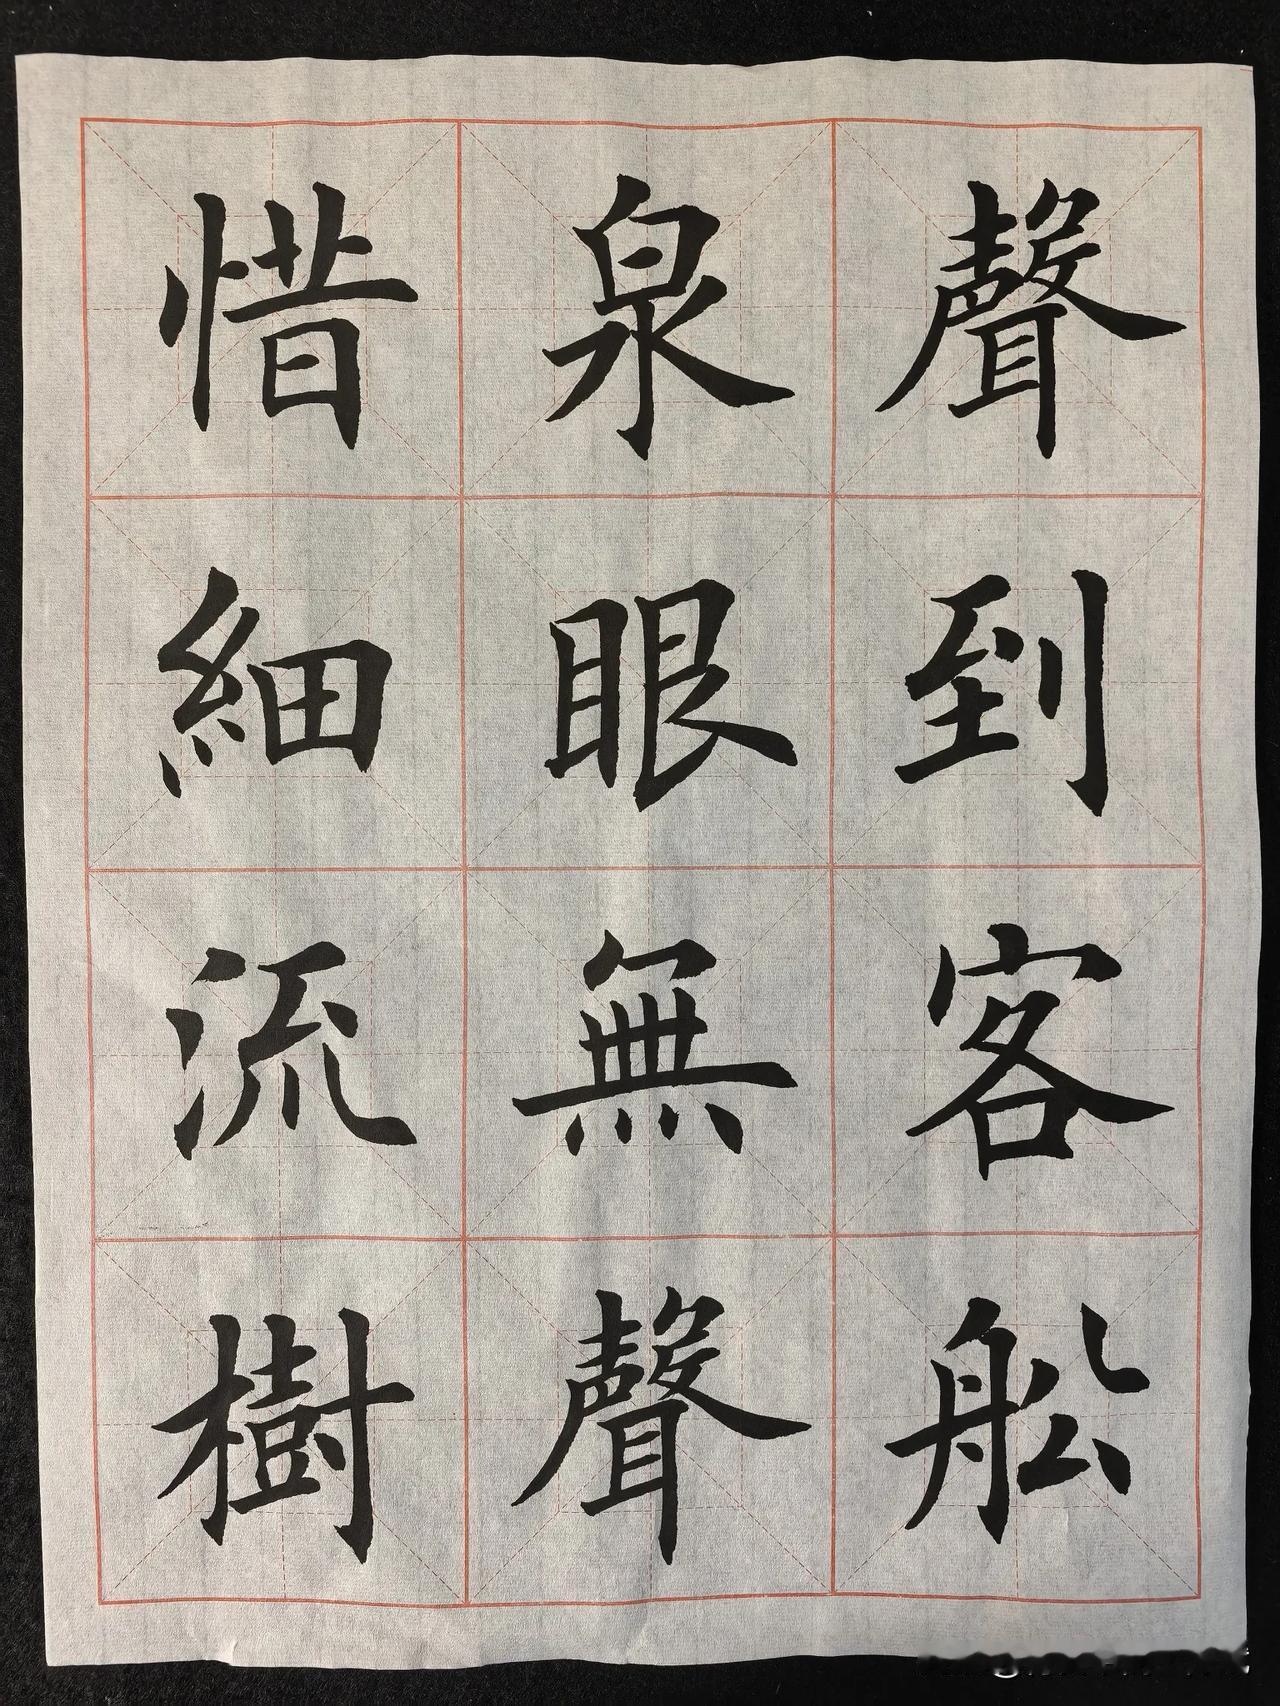 聲到客船
泉眼無聲
惜細流樹